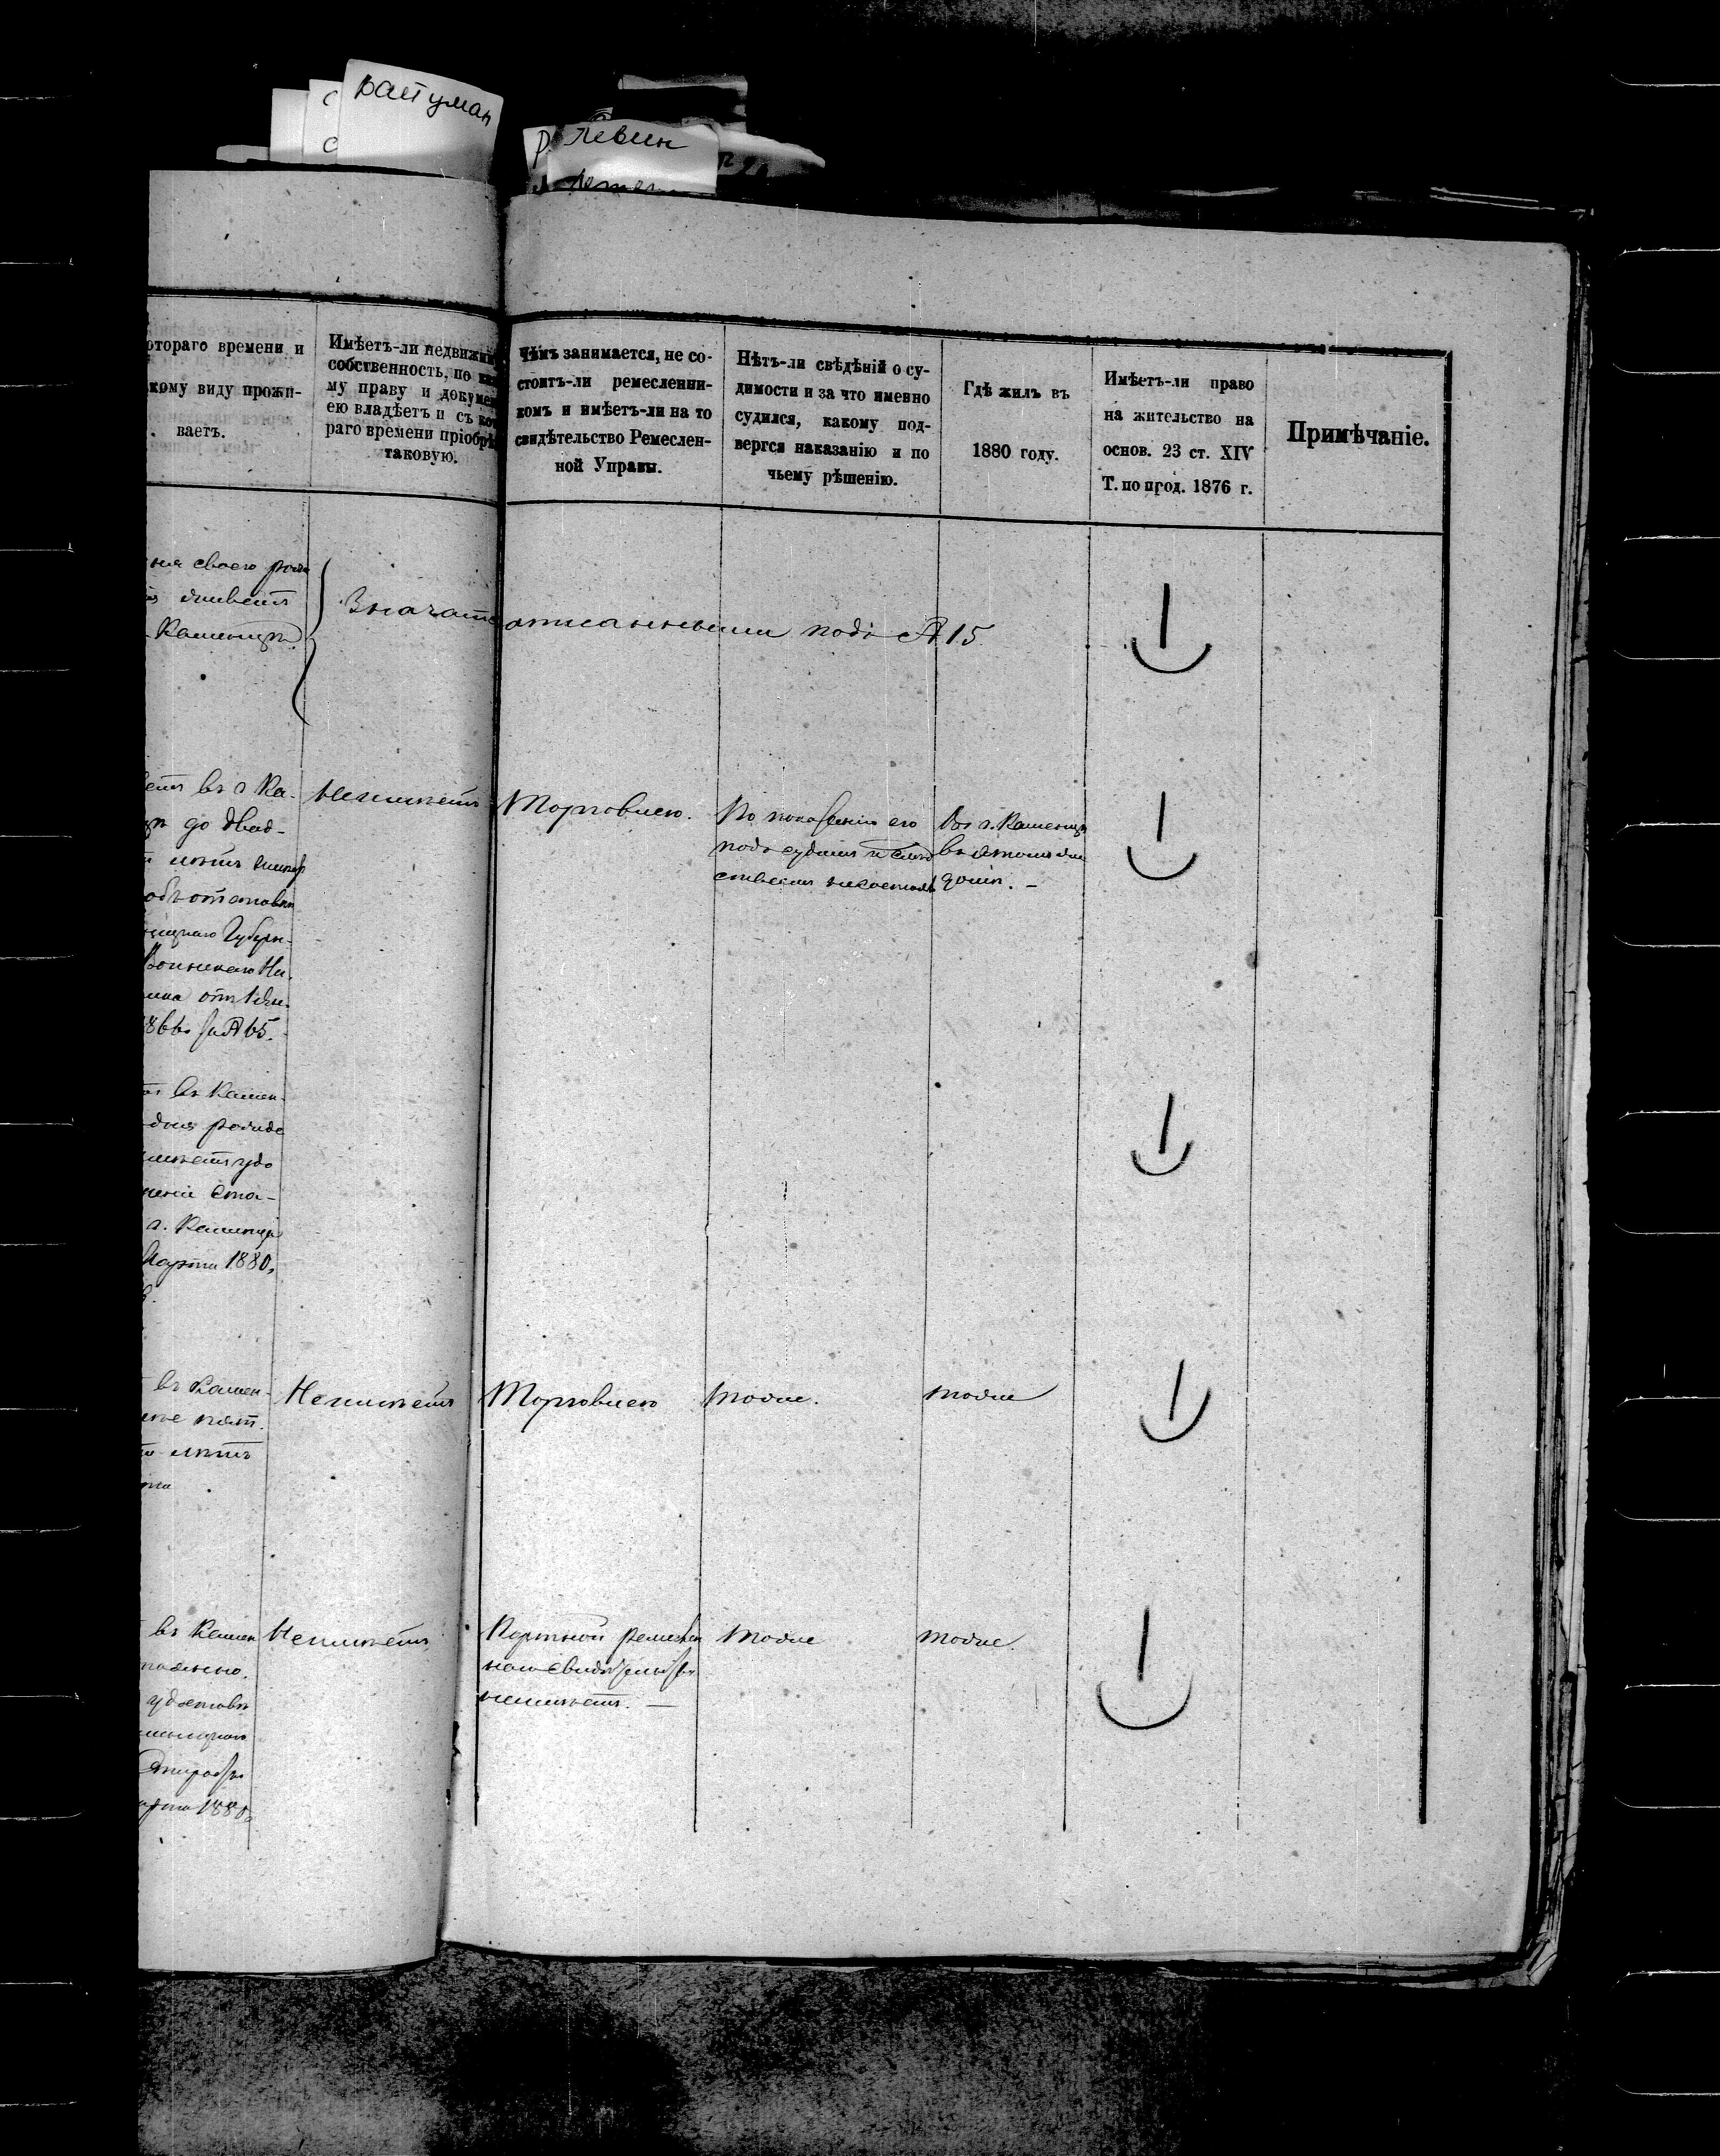 Райтман
Левин
отораго времени и
кому виду прожи-
ваетъ.
Имѣетъ-ли недвижи
собственность, по ка
му праву и докумен
ею владѣетъ и съ кото
раго времени пріобрѣ
таковую.
Чѣмъ занимается, не со-
стоитъ-ли ремесленни-
комъ и имѣетъ-ли на то
свидѣтельство Ремеслен-
ной Управы.
Нѣтъ-ли свѣдѣній о су-
димости и за что именно
судился, какому под-
вергся наказанію и по
чьему рѣшенію.
Гдѣ жилъ въ
1880 году.
Имѣетъ-ли право
на жительство на
основ. 23 ст. XIV
Т. по прод. 1876 г.
Примѣчаніе.
ня своего рож
живетъ
Каменцѣ.
Значатся описанными подъ № 15.
етъ въ г Ка-
цѣ до двад-
лѣтъ
объ отставкѣ
Губерн-
Воинскаго На-
ника отъ
1866 за № 65.
Неимѣетъ
Торговлею.
По показанію его
подъ судомъ и слѣд
ствіемъ несостоялъ
Въ г. Каменцѣ
въ этомъ же
домѣ. -
въ Камен-
дня рожде
имѣетъ удо
реніе Ста-
г. Каменца
Марта 1880,
въ Камен-
пят.
лѣтъ
Неимѣетъ
Торговлею
тоже.
тоже
въ Камен
тоянно.
удостовѣ
меницкаго
арта 1880
Неимѣетъ
Портной ремеслен
наго свидѣтельства
неимѣетъ. —
тоже
тоже.